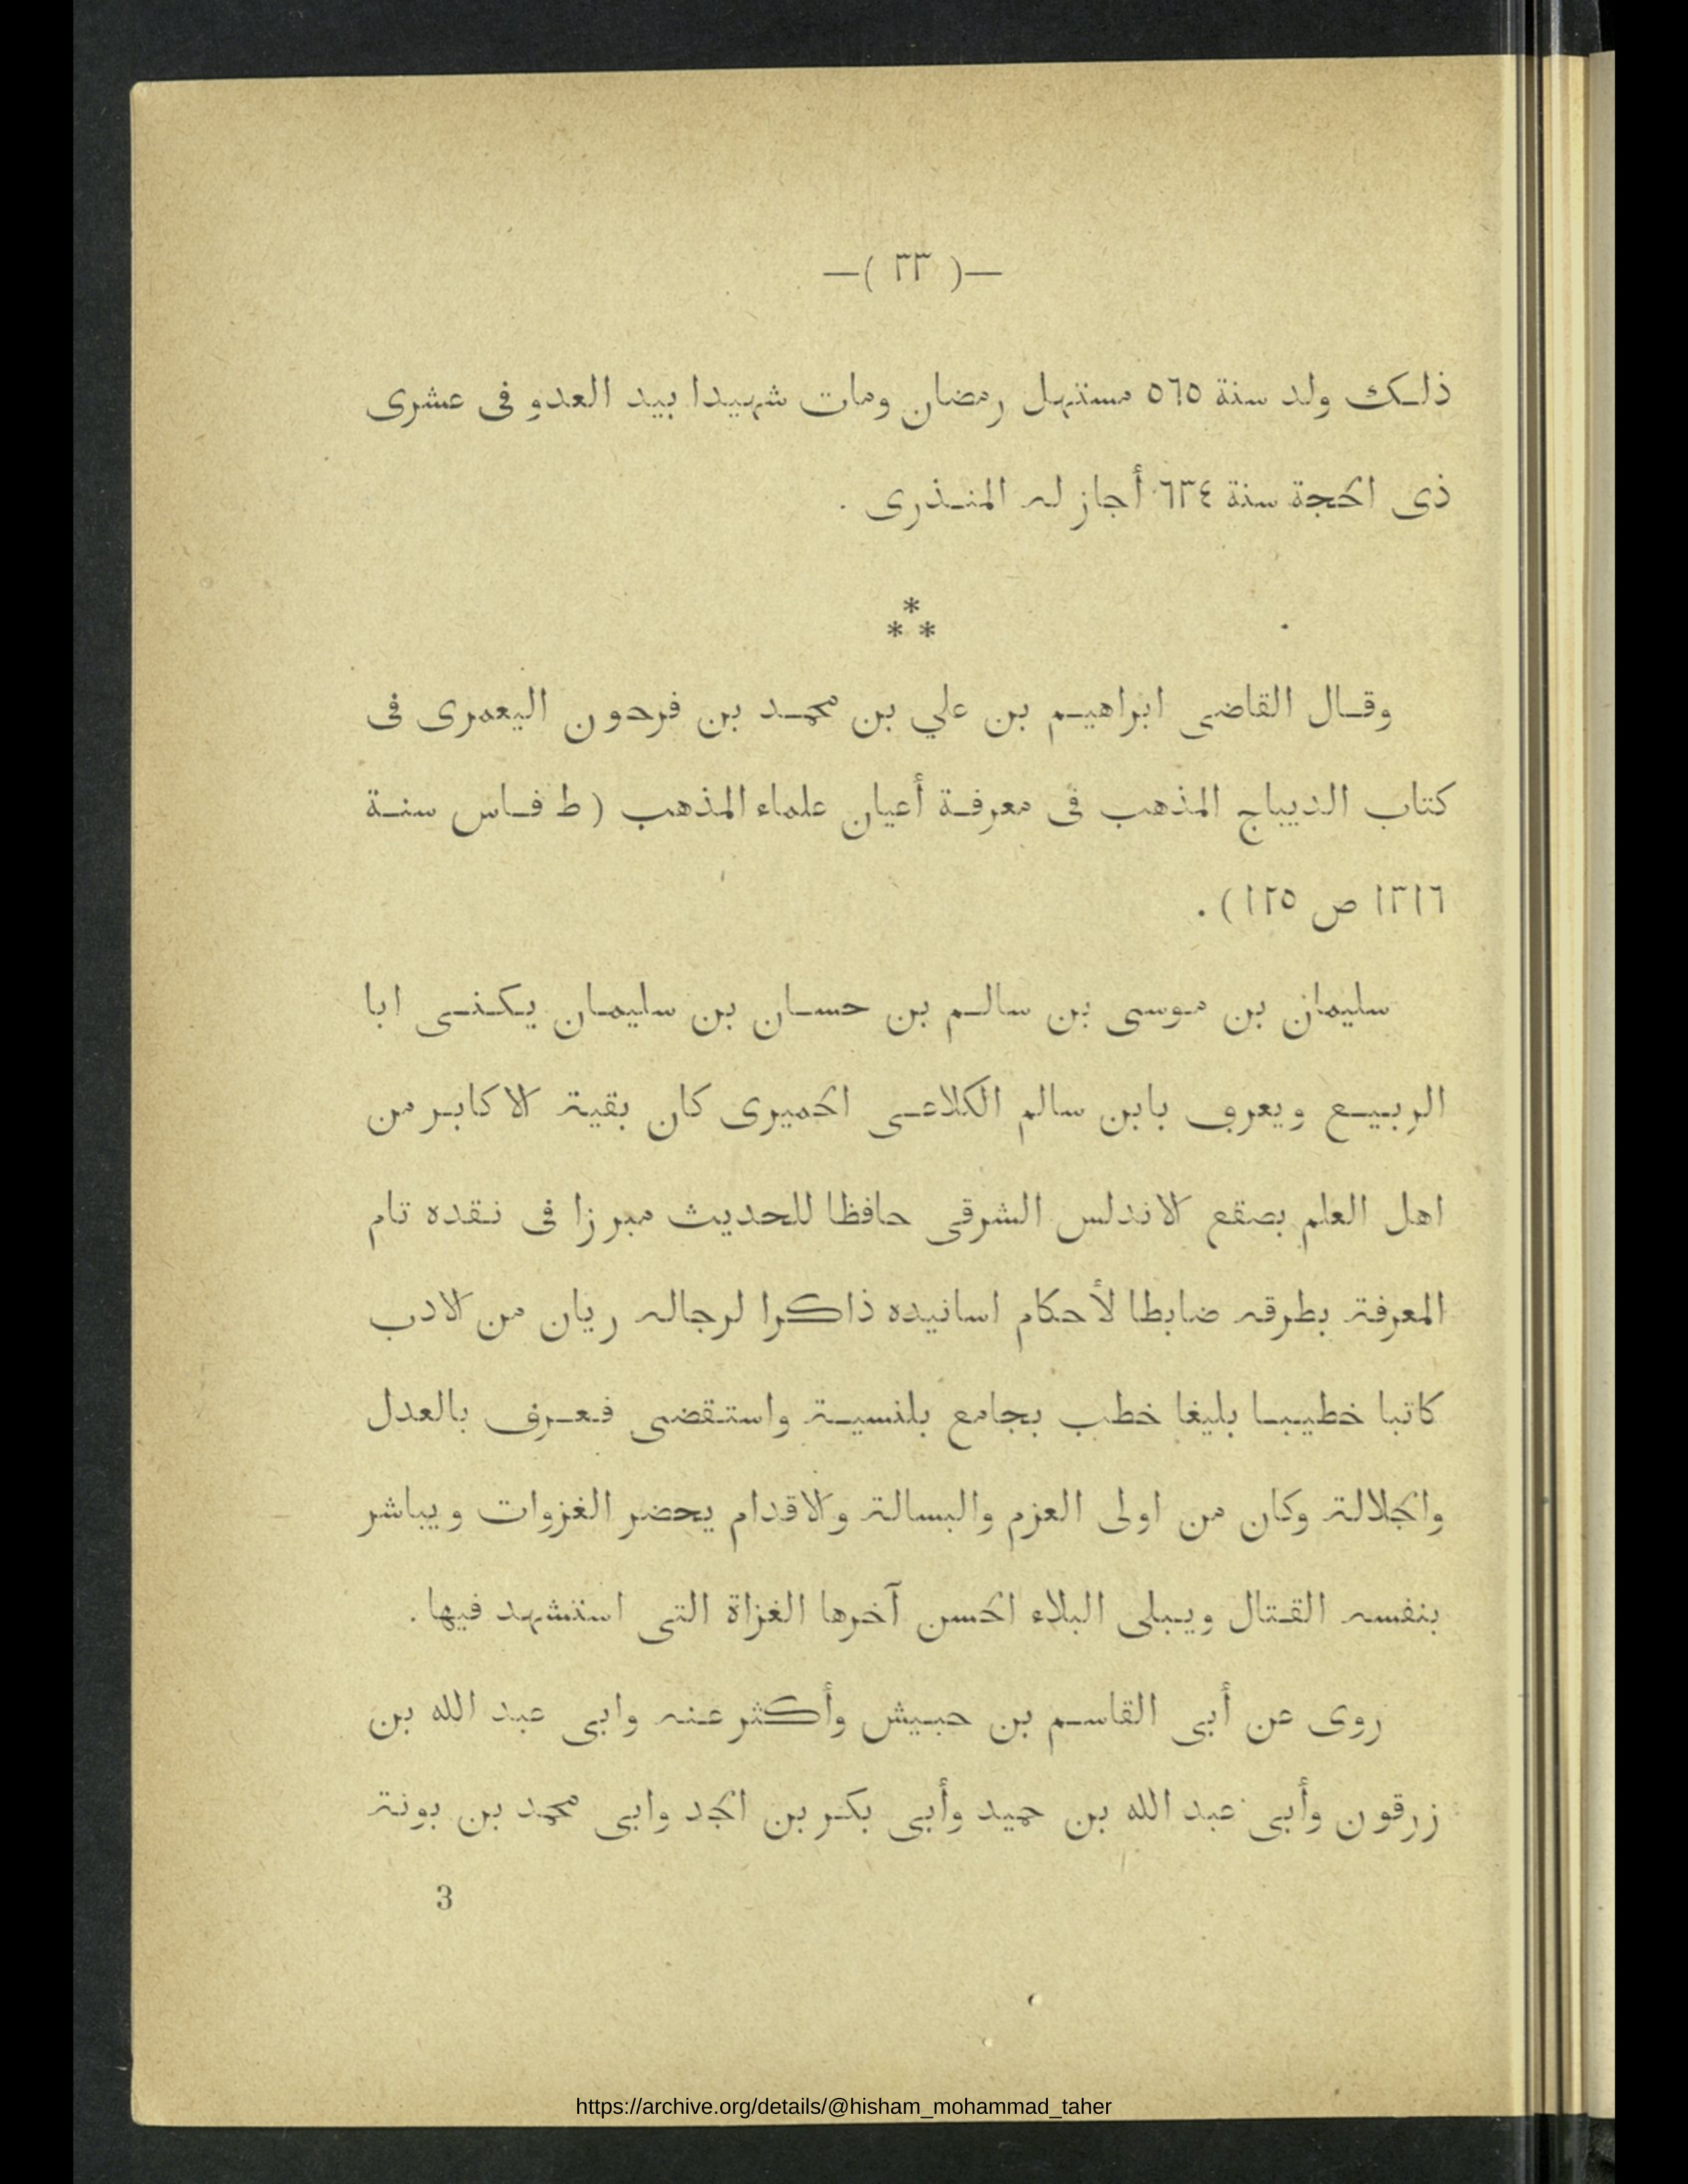 —( ٣٣ )—
ذلك ولد سنة ٥٦٥ مستهل رمضان ومات شهيدا بيد العدو فى عشرى
ذى الحجة سنة ٦٣٤ أجاز له المنذرى .
*
* *
وقال القاضى ابراهيم بن علي بن محمد بن فرحون اليعمرى فى
كتاب الديباج المذهب فى معرفة أعيان علماء المذهب ( ط فاس سنة
١٣١٦ ص ١٢٥ ) .
سليمان بن موسى بن سالم بن حسان بن سليمان يكنى ابا
الربيع ويعرف بابن سالم الكلاعى الحميرى كان بقية الاكابر من
اهل العلم بصقع الاندلس الشرقى حافظا للحديث مبرزا فى نقده تام
المعرفة بطرقه ضابطا لأحكام اسانيده ذاكرا لرجاله ريان من الادب
كاتبا خطيبا بليغا خطب بجامع بلنسية واستقضى فعرف بالعدل
والجلالة وكان من اولى العزم والبسالة والاقدام يحضر الغزوات ويباشر
بنفسه القتال ويبلى البلاء الحسن آخرها الغزاة التى استشهد فيها .
روى عن أبى القاسم بن حبيش وأكثر عنه وابى عبد الله بن
زرقون وأبى عبد الله بن حميد وأبى بكر بن الجد وابى محمد بن بونة
3
https://archive.org/details/@hisham_mohammad_taher